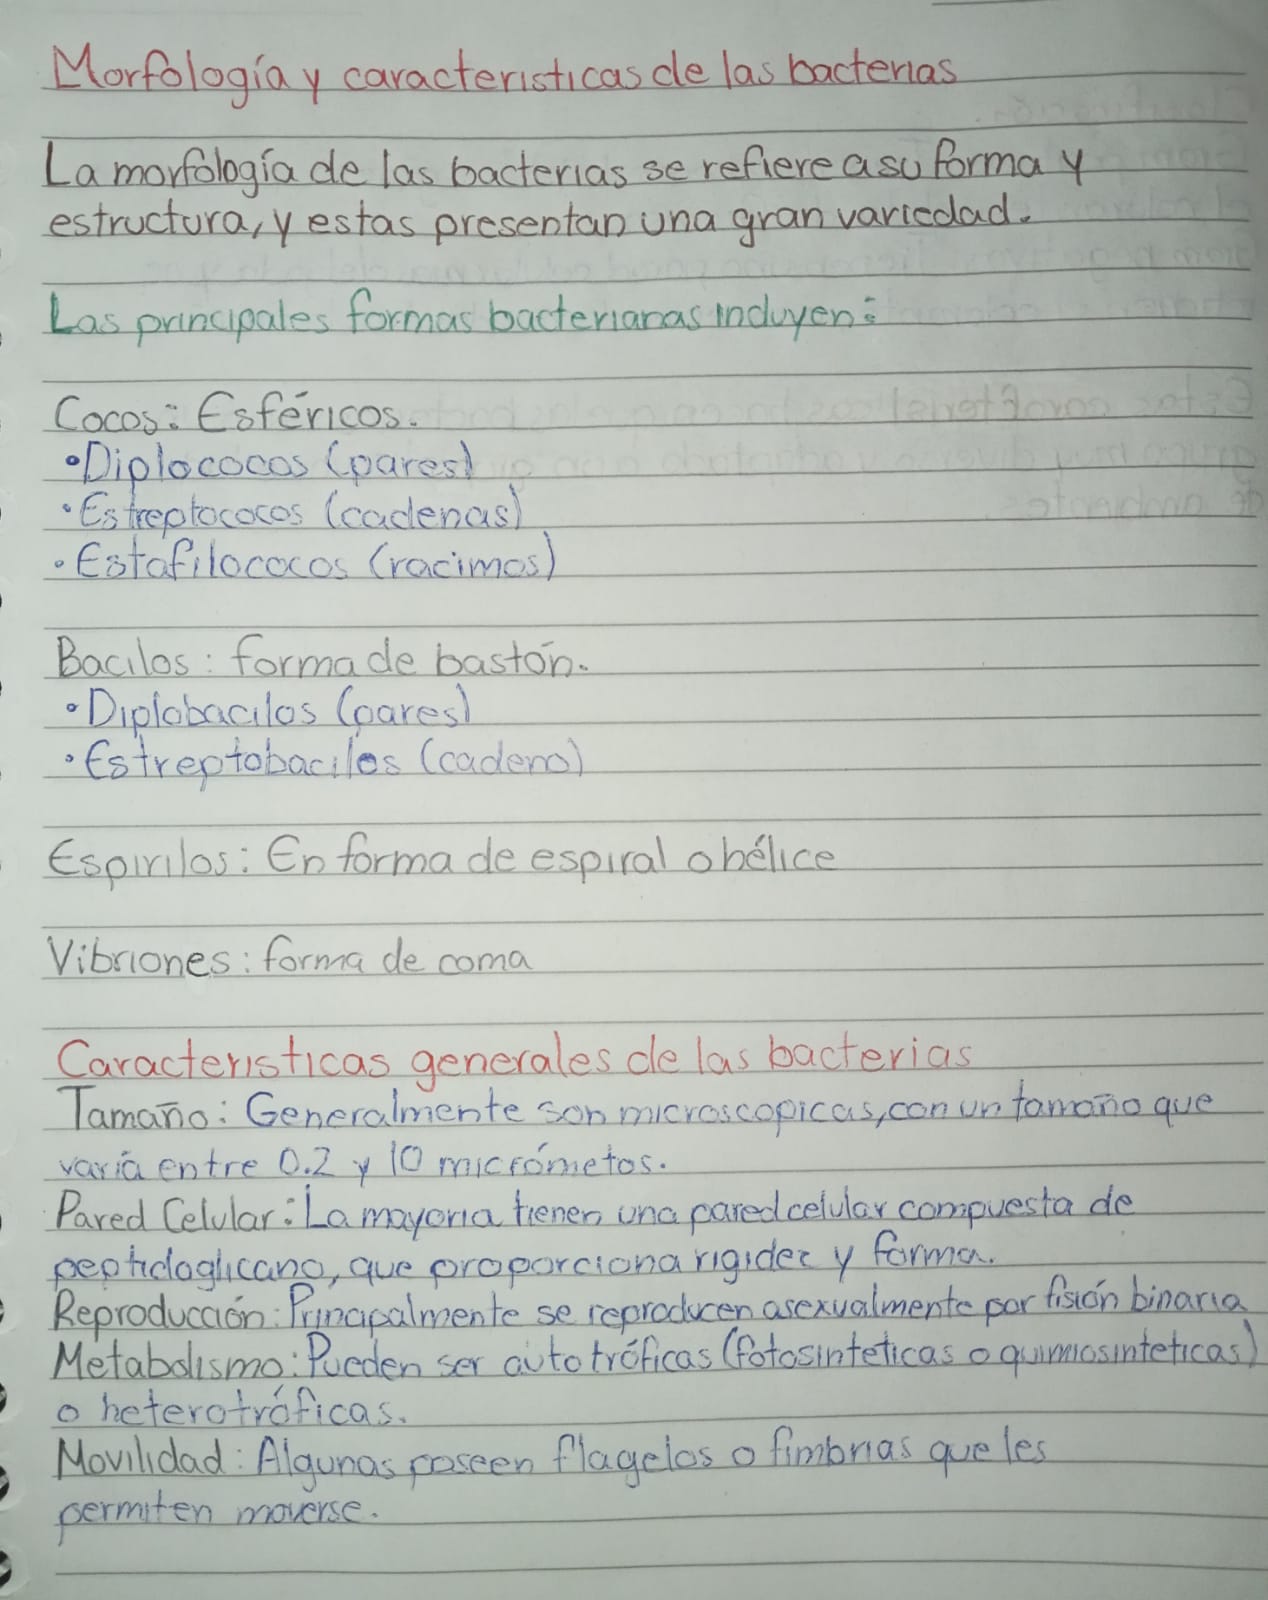 Morfología y caracteristicas de las bacterias
La morfología de las bacterias se refiere a su forma y
estructura, y estas presentan una gran variedad.
Las principales formas bacterianas incluyen:
Cocos: Esféricos.
• Diplococos (pares)
• Estreptococos (cadenas)
• Estafilococos (racimos)
Bacilos: forma de bastón.
• Diplobacilos (pares)
• Estreptobacilos (cadena)
Espirilos: En forma de espiral o hélice
Vibriones: forma de coma
Caracteristicas generales de las bacterias
Tamaño: Generalmente son microscopicas, con un tamaño que
varía entre 0.2 y 10 micrómetos.
Pared Celular: La mayoria tienen una pared celular compuesta de
peptidoglicano, que proporciona rigidez y forma.
Reproducción: Principalmente se reproducen asexualmente por fisión binaria
Metabolismo: Pueden ser autotróficas (fotosinteticas o quimiosinteticas)
o heterotróficas.
Movilidad: Algunas poseen flagelos o fimbrias que les
permiten moverse.